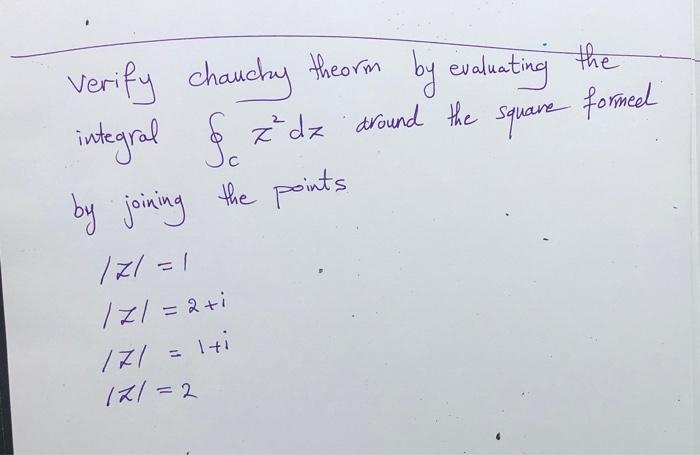 Verify chauchy theorm by evaluating the
integral ∮_C z² dz around the square formed
by joining the points
|z| = 1
|z| = 2+i
|z| = 1+i
|z| = 2